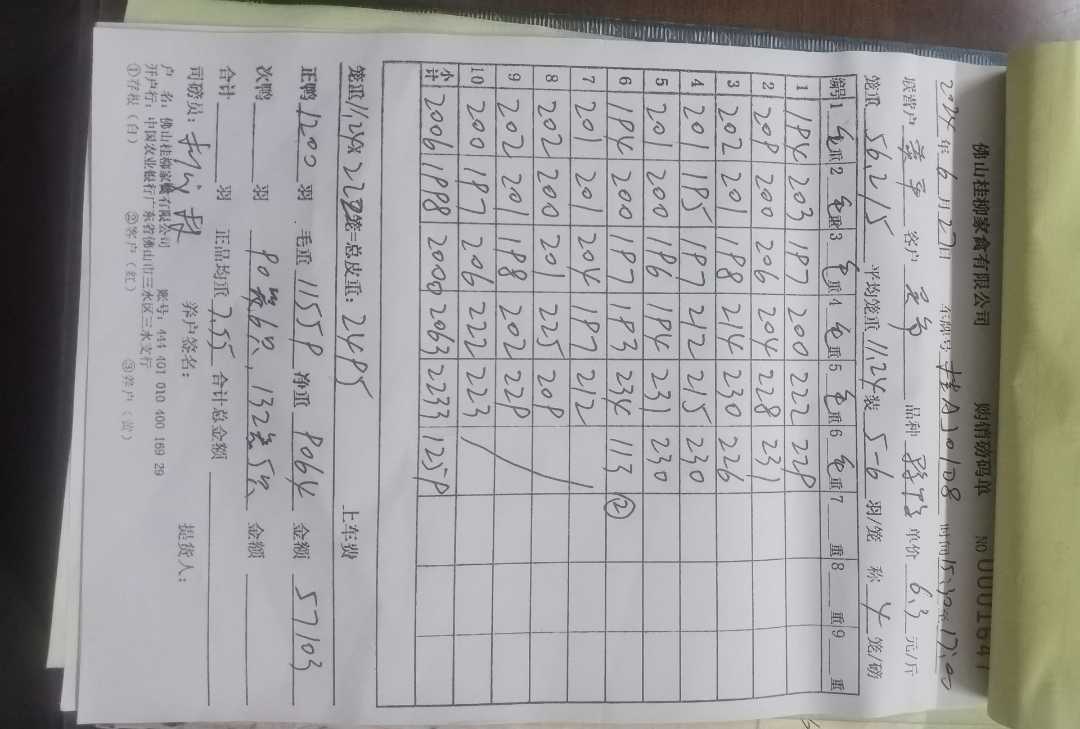 佛山桂柳家禽有限公司 购销磅码单 NO 0001647
2024年6月27日 车牌号 桂AJ01D8 时间15:30至17:00
联营户 客户 品种 单价 6.3 元/斤
笼重 56.2/5 平均笼重 11.24 装 5-6 羽/笼 称 4 笼/磅
编号 1 毛重 2 毛重 3 毛重 4 毛重 5 毛重 6 毛重 7 重 8 重 9 重
1 194 203 197 200 222 229
2 208 200 206 204 228 231
3 202 201 198 214 230 226
4 201 195 197 212 215 230
5 201 200 196 194 231 230
6 194 200 197 193 234 113 ②
7 201 201 204 197 212
8 202 200 201 225 209
9 202 201 198 202 229
10 200 197 206 222 223
小计 2006 1998 2000 2063 2233 1259
笼重11.24X222笼=总皮重: 2495 上车费
正鸭 1200 羽 毛重 11559 净重 9064 金额 57103
次鸭 羽 90装6只,132装5只 金额
合计 羽 正品均重 7.55 合计总金额
司磅员: 养户签名: 提货人:
户 名: 佛山桂柳家禽有限公司 账号: 444 401 010 400 169 29
开户行: 中国农业银行广东省佛山市三水区三水支行
①存根(白) ②客户(红) ③养户(黄)